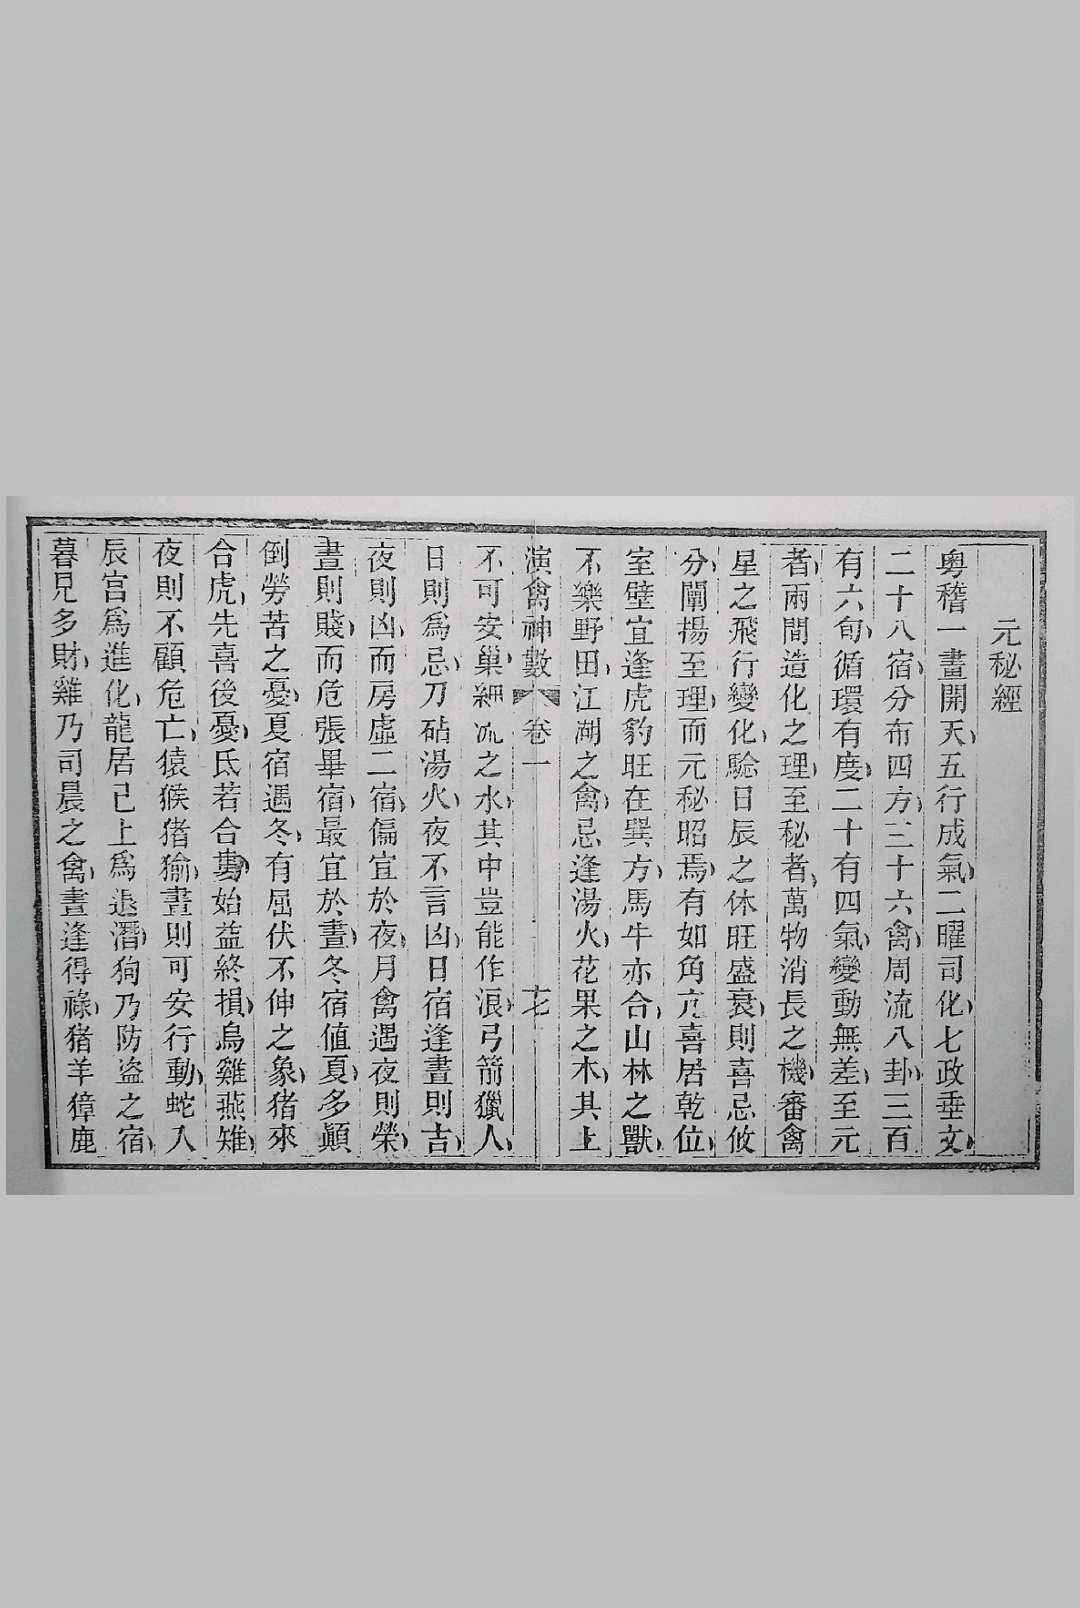 元秘經
粤稽一畫開天五行成氣二曜司化七政垂文
二十八宿分布四方三十六禽周流八卦三百
有六旬循環有度二十有四氣變動無差至元
者兩間造化之理至秘者萬物消長之機審禽
星之飛行變化驗日辰之休旺盛衰則喜忌攸
分闡揚至理而元秘昭焉有如角亢喜居乾位
室壁宜逢虎豹旺在巽方馬牛亦合山林之獸
不樂野田江湖之禽忌逢湯火花果之木其上
演禽神數 卷一 十七
不可安巢細流之水其中豈能作浪弓箭獵人
日則爲忌刀砧湯火夜不言凶日宿逢晝則吉
夜則凶而房虛二宿偏宜於夜月禽遇夜則榮
晝則賤而危張畢宿最宜於晝冬宿值夏多顛
倒勞苦之憂夏宿遇冬有屈伏不伸之象猪來
合虎先喜後憂氐若合婁始益終損烏雞燕雉
夜則不顧危亡猿猴猪㺄晝則可安行動蛇入
辰宫爲進化龍居已上爲退潛狗乃防盗之宿
暮見多財雞乃司晨之禽晝逢得祿猪羊獐鹿